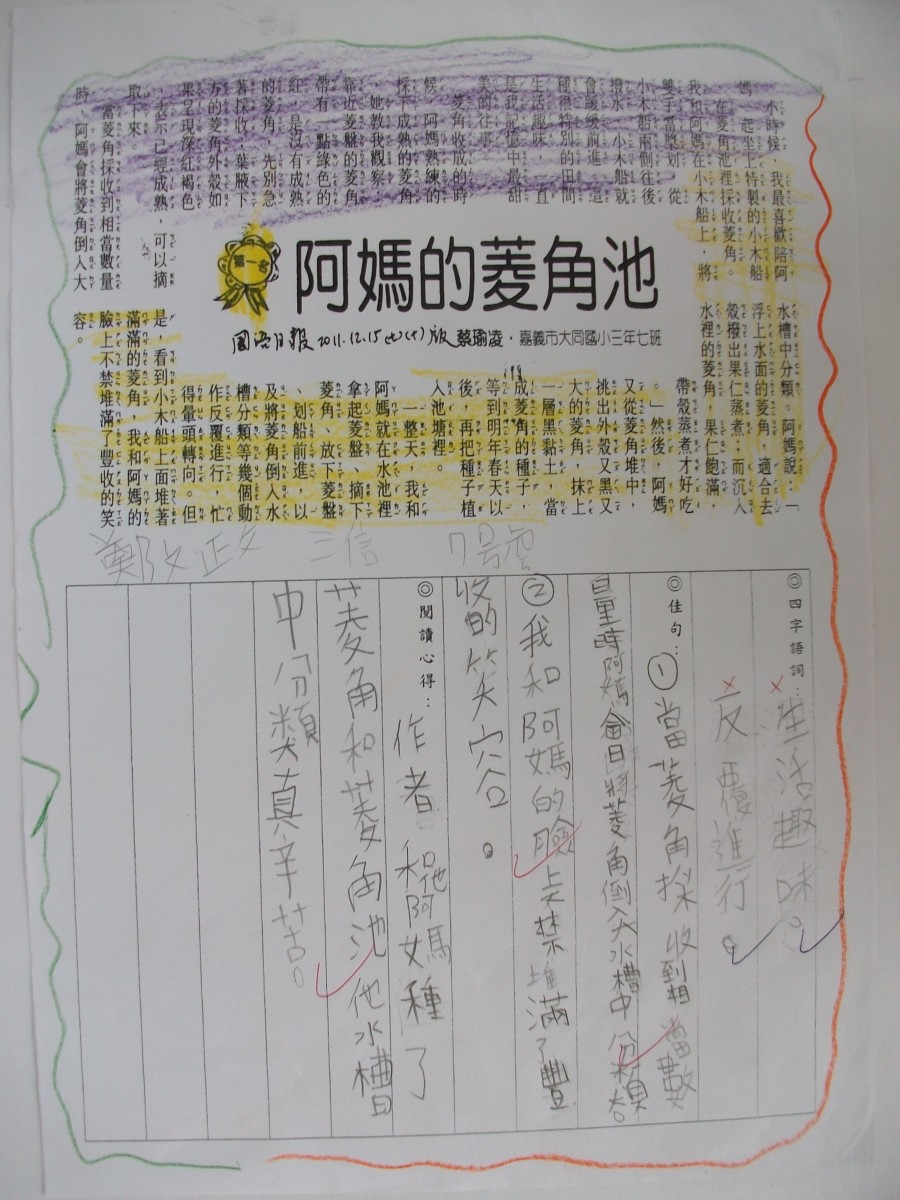 小時候，我最喜歡陪阿
媽一起坐上特製的小木船
，在菱角池裡採收菱角。
我和阿媽在小木船上，將
雙手當槳划，從
小木船兩側往後
撥水，小木船就
會緩緩前進。這
種很特別的田間
生活趣味，一直
是我記憶中最甜
美的往事。
菱角收成的時
候，阿媽熟練的
採下成熟的菱角
，她教我觀察：
靠近菱盤的菱角
帶有一點綠色的
紅，是沒有成熟
的菱角，先別急
著採收，葉腋下
方的菱角外殼如
果呈現深紅褐色
，表示已經成熟，可以摘
取下來。
當菱角採收到相當數量
時，阿媽會將菱角倒入大
第一名
阿媽的菱角池
國語日報 2011.12.15 版 蔡瑜凌·嘉義市大同國小三年七班
水槽中分類。阿媽說：「
浮上水面的菱角，適合去
殼撥出果仁蒸煮；而沉入
水裡的菱角，果仁飽滿，
帶殼蒸煮才好吃
。」然後，阿媽
又從菱角堆中，
挑出外殼又黑又
大的菱角，抹上
一層黑黏土，當
成菱角的種子，
等到明年春天以
後，再把種子植
入池塘裡。
一整天，我和
阿媽就在水池裡
拿起菱盤、摘下
菱角、放下菱盤
、划船前進，以
及將菱角倒入水
槽分類等幾個動
作反覆進行，忙
得暈頭轉向。但
是，看到小木船上面堆著
滿滿的菱角，我和阿媽的
臉上不禁堆滿了豐收的笑
容。
鄭文政 三信 7號
◎四字語詞：生活趣味。
反覆進行。
◎佳句：①當菱角採收到相當數
量時阿媽會將菱角倒入大水槽中份類
②我和阿媽的臉上禁堆滿了豐
收的笑容。
◎閱讀心得：作者和他阿媽種了
菱角和菱角池他水槽
中分類真辛苦。